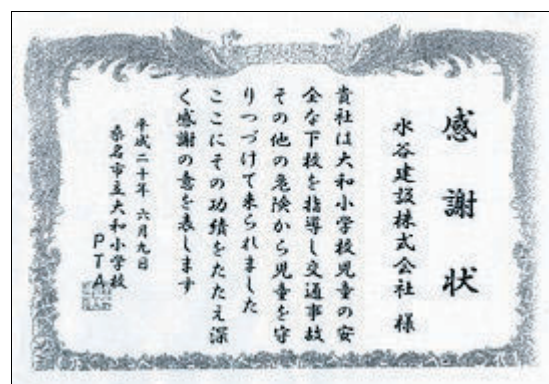 感謝状
水谷建設株式会社 様
貴社は大和小学校児童の安
全な下校を指導し交通事故
その他の危険から児童を守
りつづけて来られました
ここにその功績をたたえ深
く感謝の意を表します
平成二十年 六月九日
桑名市立大和小学校
PTA